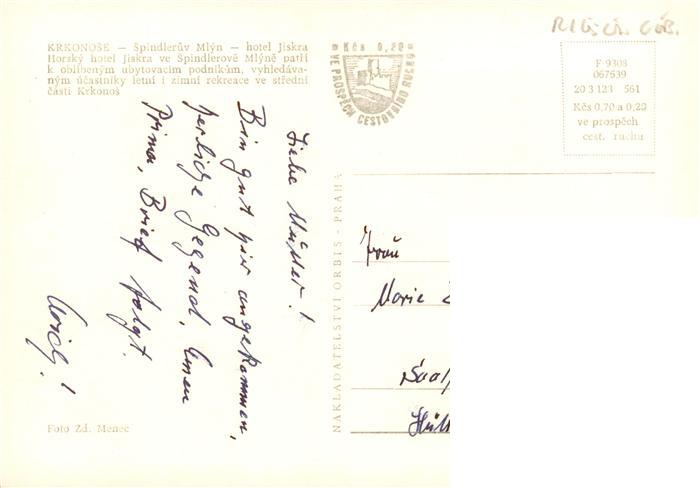 KRKONOŠE — Špindlerův Mlýn — hotel Jiskra
Horský hotel Jiskra ve Špindlerově Mlýně patří
k oblíbeným ubytovacím podnikům, vyhledáva-
ným účastníky letní i zimní rekreace ve střední
části Krkonoš
Liebe Mutter!
Bin gut hier angekommen,
herliche Gegend, Essen
Prima, Brief folgt.
Foto Zd. Menec
Kčs 0,20
VE PROSPĚCH CESTOVNÍHO RUCHU
F 9303
067539
20 3 123 561
Kčs 0,70 a 0,20
ve prospěch
cest. ruchu
NAKLADATELSTVÍ ORBIS - PRAHA
Frau
Marie